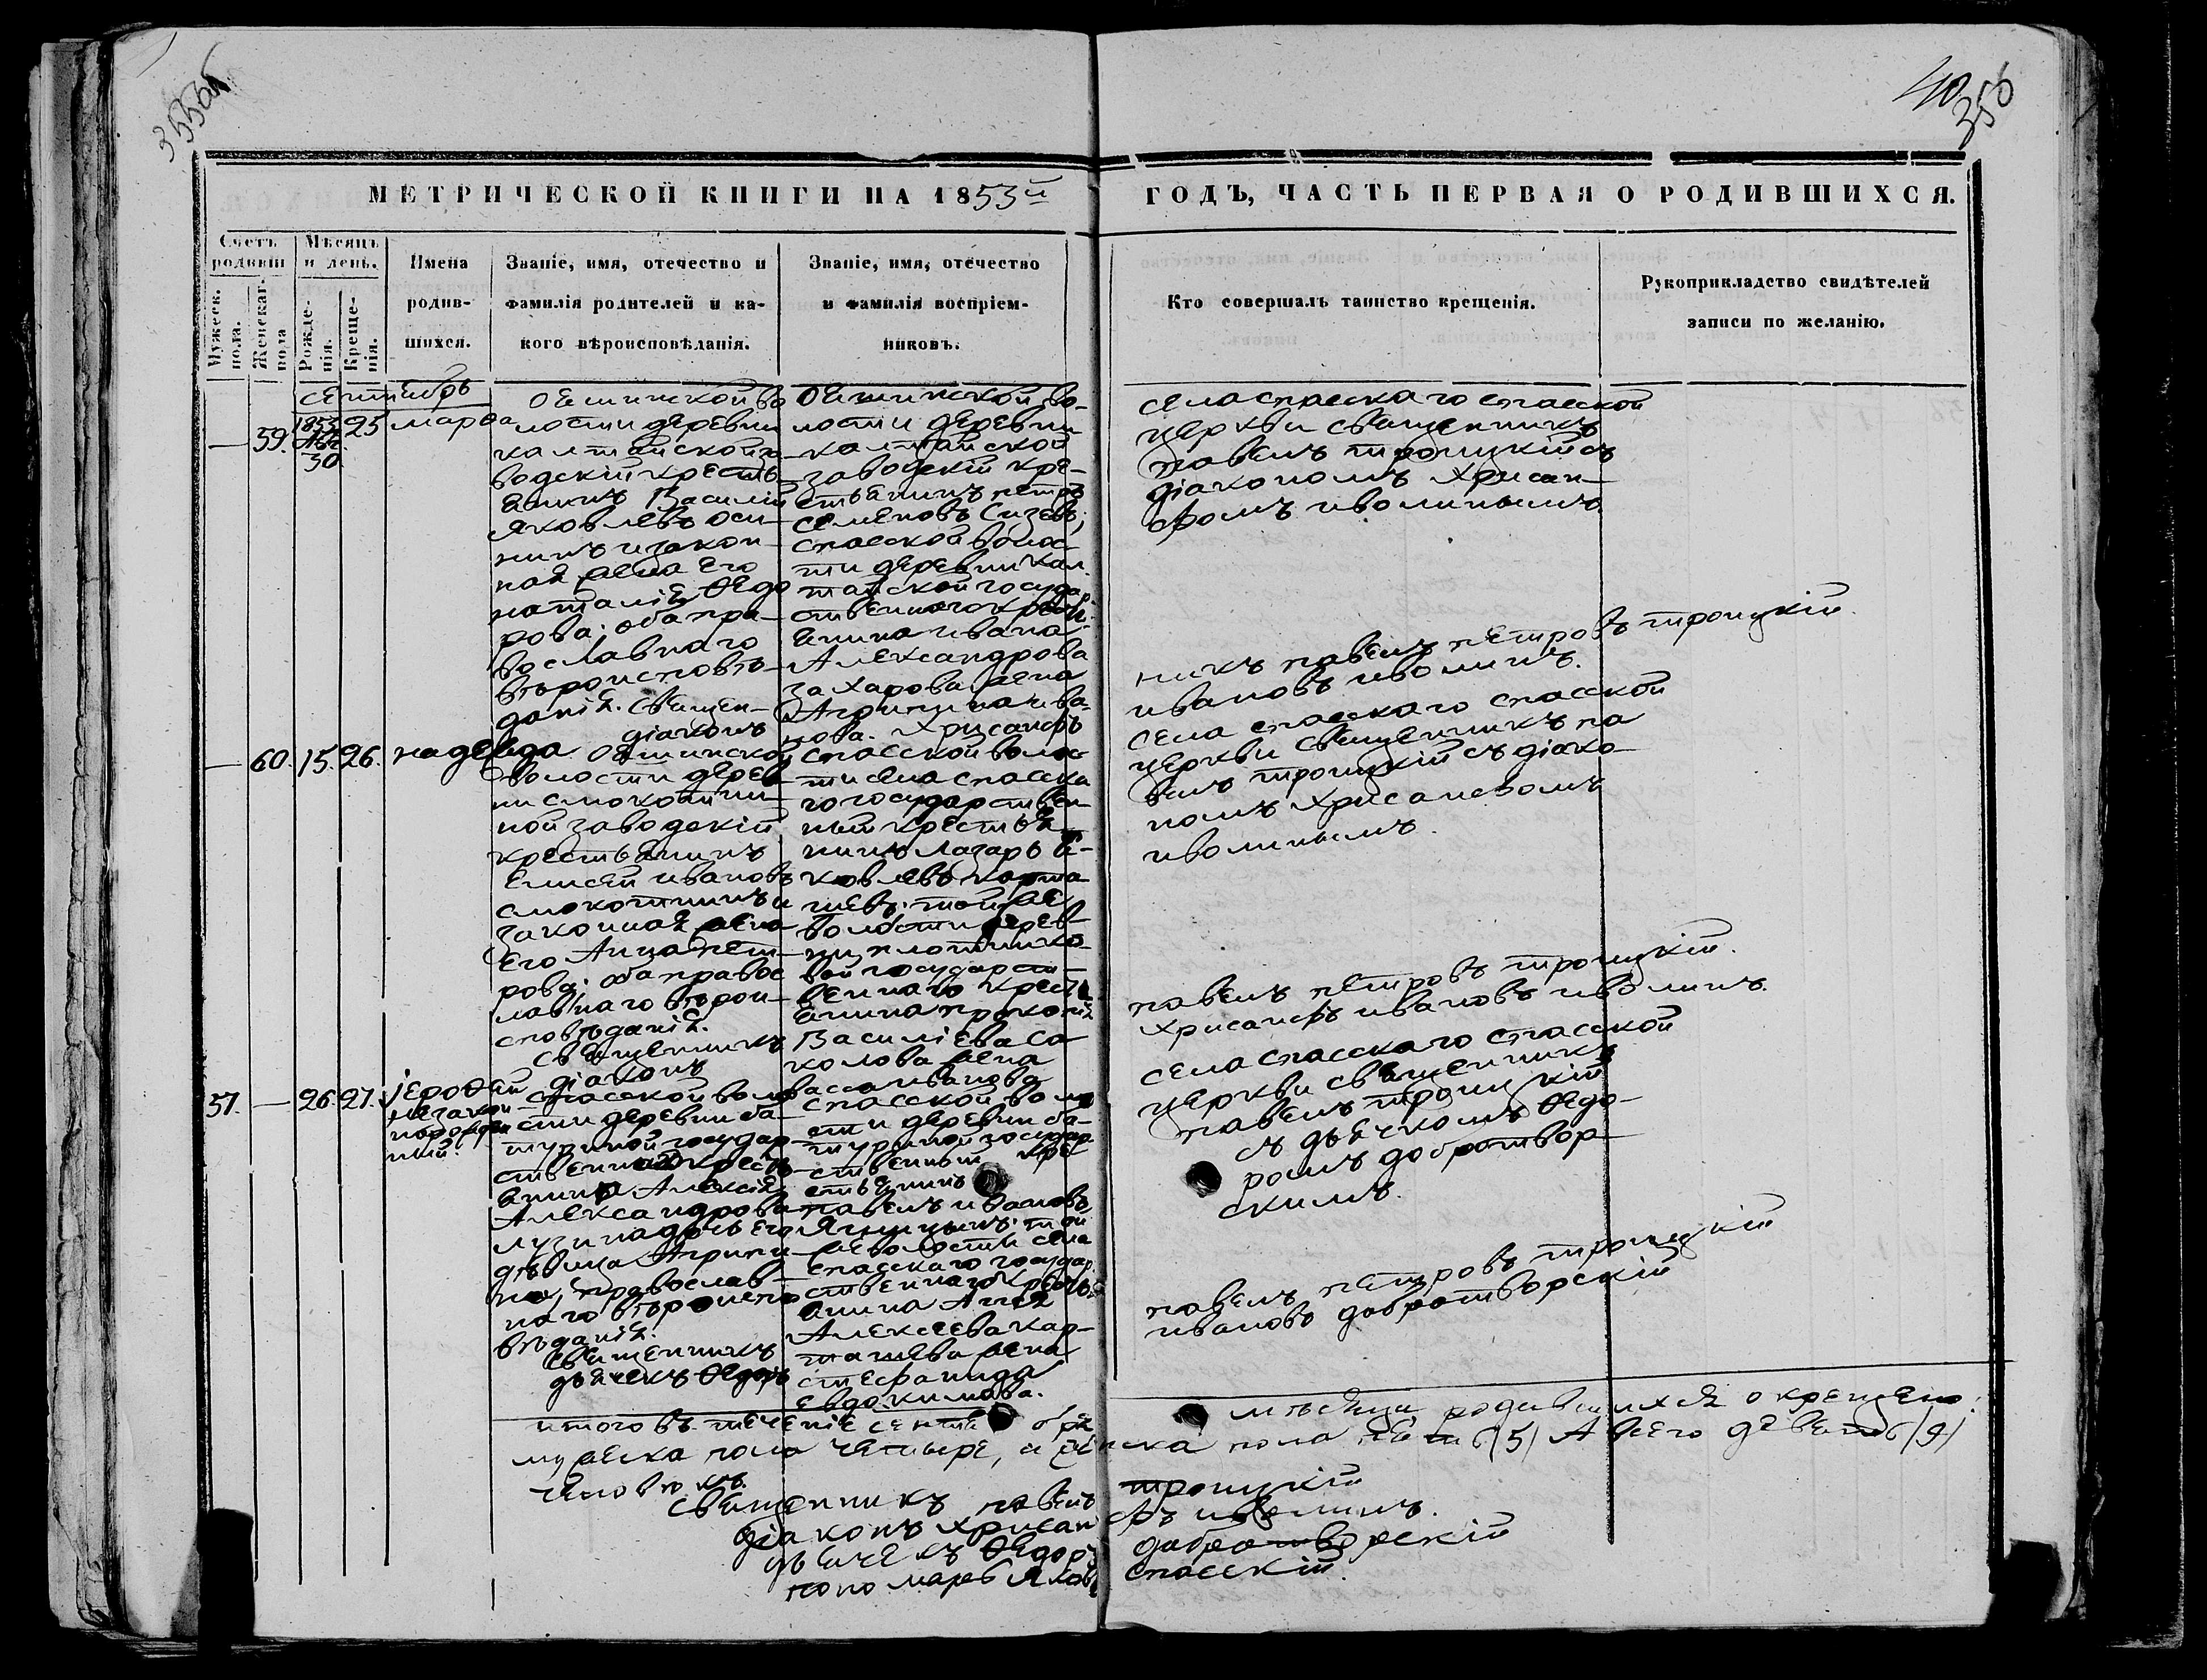 355об
40
356
МЕТРИЧЕСКОЙ КНИГИ НА 1853й
ГОДЪ, ЧАСТЬ ПЕРВАЯ О РОДИВШИХСЯ.
Счетъ родивш
Мужеск. пола.
Женскаг. пола
Мѣсяцъ и день.
Рожде-нія.
Креще-нія.
Имена
родив-
шихся.
Званіе, имя, отечество и
фамилія родителей и ка-
кого вѣроисповѣданія.
Званіе, имя, отечество
и фамилія воспріем-
никовъ.
Кто совершалъ таинство крещенія.
Рукоприкладство свидѣтелей
записи по желанію.
сентябрь
—
59.
1853
30.
25
марфа
волости деревни
калтайской за-
водскій кресть-
янинъ Василій
Яковлевъ оси-
нинъ и закон-
ная жена его
наталія Ѳедо
рова; оба пра-
вославнаго
вѣроисповѣ-
данія. Священ-
діаконъ
волости деревни
калтайской
заводскій кре-
стьянинъ петръ
семеновъ Сизевъ;
спасской волос-
ти деревни кал-
тайской государ-
ственнаго кресть-
янина ивана
Александрова
захарова жена
Агрипина ива-
нова. Хрисанфъ
села спаскаго спасской
церкви священникъ
павелъ троицкій съ
діакономъ Хрисан-
фомъ иволинымъ.
никъ павелъ петровъ троицкій.
ивановъ иволинъ.
—
60.
15.
26.
надежда
волости дерев-
ни смокотни-
ной заводскій
крестьянинъ
Елисей ивановъ
смокотнинъ и
законная жена
его Анна пет-
рова; оба правос
лавнаго вѣрои-
сповѣданія.
священникъ
діаконъ
спасской волос-
ти села спасска
го государствен-
ный крестья-
нинъ лазарь я-
ковлевъ карта-
шевъ; той же
волости дерев
ни плотнико-
вой государст-
веннаго кресть
янина прокопія
Василіева Со
колова жена
васса иванова
села спасскаго спасской
церкви священникъ па
велъ троицкій съ діако-
номъ Хрисанфомъ
иволинымъ.
павелъ петровъ троицкій.
хрисанфъ ивановъ иволинъ.
57.
—
26.
27.
іероѳей
незакон
норожден
ный.
спасской воло
сти деревни ба-
туриной государ-
ственнаго кресть-
янина Алексія
Александрова
лузина дочь его
дѣвица Агрипи-
на; православ-
наго вѣроиспо
вѣданія.
священникъ
дьячекъ Ѳедоръ
спасской воло
сти деревни ба-
туриной государ-
ственный кре
стьянинъ
павелъ ивановъ
той
же волости села
спасскаго государ-
ственнаго кресть-
янина
Алексеева кар-
ташева жена
стефанида
евдокимова.
села спасскаго спасской
церкви священникъ
павелъ троицкій
съ дьячкомъ Ѳедо-
ромъ добротвор-
скимъ.
павелъ петровъ троицкій
ивановъ добротворскій
итого въ теченіе сентября мѣсяца родившихся окрещено:
мужеска пола четыре, а женска пола пять (5) А всего девять (9)
человѣкъ.
священникъ павелъ троицкій
діаконъ хрисанфъ иволинъ.
дьячекъ Ѳедоръ добротворскій
пономарь Яковъ спасскій.